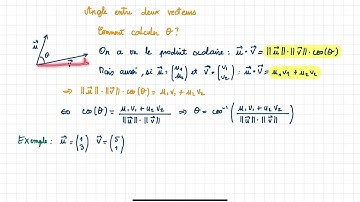 Angle entre deux vecteurs
Comment calculer θ ?
On a vu le produit scalaire : u⃗ · v⃗ = ||u⃗|| · ||v⃗|| · cos(θ)
Mais aussi, si u⃗ = (u₁ u₂) et v⃗ = (v₁ v₂) : u⃗ · v⃗ = u₁v₁ + u₂v₂
⇒ ||u⃗|| · ||v⃗|| · cos(θ) = u₁v₁ + u₂v₂
⇔ cos(θ) = (u₁v₁ + u₂v₂) / (||u⃗|| · ||v⃗||) ⇒ θ = cos⁻¹((u₁v₁ + u₂v₂) / (||u⃗|| · ||v⃗||))
Exemple : u⃗ = (1 3) v⃗ = (5 1)
u⃗
θ
v⃗